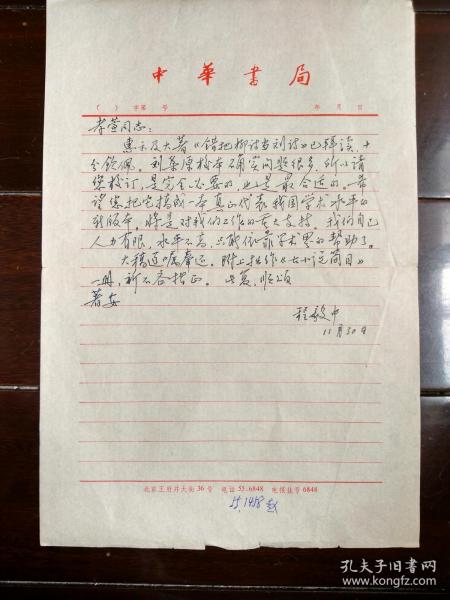 中华书局
( ) 字第 号 年 月 日
孝萱同志：
惠示及大著《错把柳诗当刘诗》已拜读，十
分钦佩。刘集原校本确实问题很多，所以请
您校订，是完全必要的，也是最合适的。希
望您把它搞成一本真正代表我国学术水平的
新版本，将是对我们工作的有大支持。我们自己
人力有限，水平不高，只能依靠学术界的帮助了。
大稿遵嘱奉还。附上拙作《古小说简目》
一册，祈不吝指正。此复，顺颂
著安
程毅中
11月30日
北京王府井大街36号 电话55.6848 电报挂号6848
55.1458 赵
孔夫子旧书网
www.kongfz.com